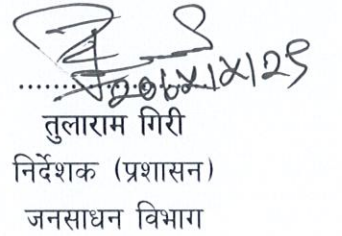 तुलाराम गिरी
निर्देशक (प्रशासन)
जनसाधन विभाग